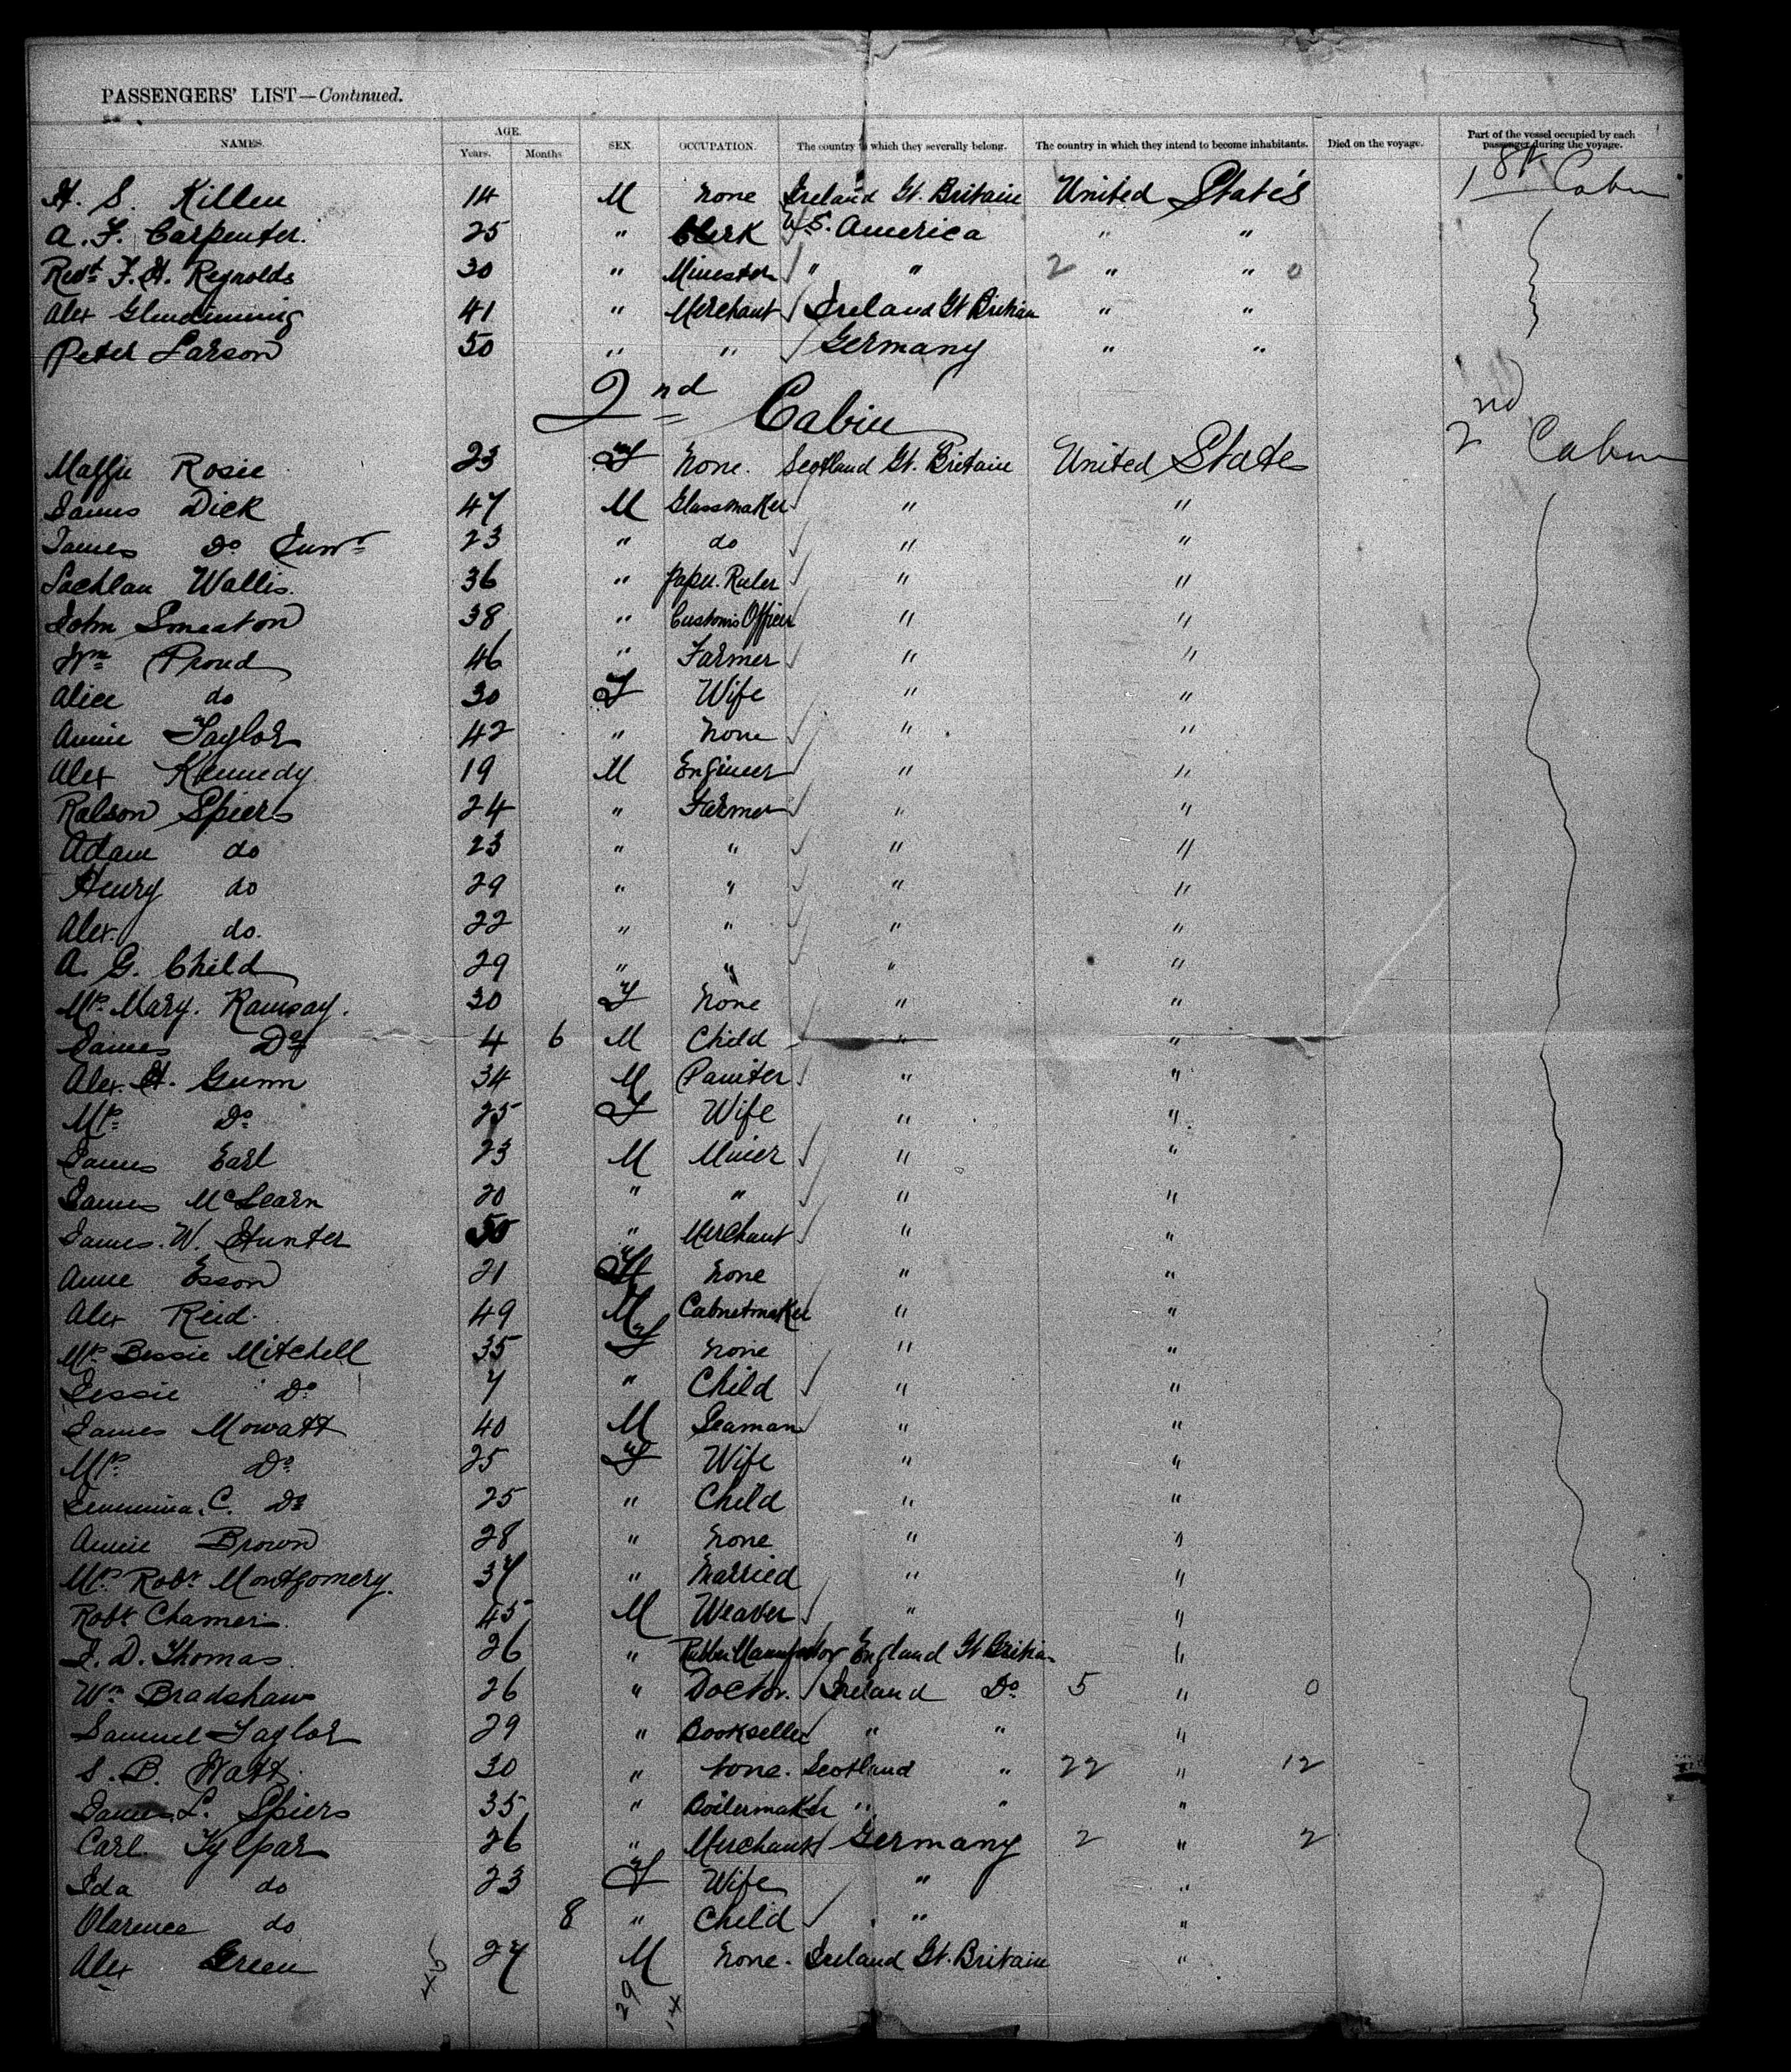 PASSENGERS' LIST—Continued.
NAMES. AGE. Years. Months SEX. OCCUPATION. The country to which they severally belong. The country in which they intend to become inhabitants. Died on the voyage. Part of the vessel occupied by each passenger during the voyage.
H. S. Killen 14 M None Ireland Gt. Britain United States 1st Cabin
A. F. Carpenter. 25 " Clerk U.S. America " "
Revd F. H. Reynolds 30 " Minester " " 2 " " 0
Alex Glendinning 41 " Merchant Ireland Gt Britian " "
Peter Larson 50 " " Germany " "
2nd Cabin 2nd Cabin
Maggie Rosie 23 F None. Scotland Gt. Britain United States
James Dick 47 M Glassmaker " "
James Do Junr 23 " do " "
Lachlan Wallis. 36 " Paper. Ruler " "
John Smeaton 38 " Customs Officer " "
Wm Proud 46 " Farmer " "
Alice do 30 F Wife " "
Annie Taylor 42 " None " "
Alex Kennedy 19 M Engineer " "
Ralson Spiers 24 " Farmer " "
Adam do 23 " " " "
Henry do 29 " " " "
Alex. do. 22 " " " "
A. G. Child 29 " " " "
Mrs Mary. Ramsay. 30 F None " "
James Do 4 6 M Child " "
Alex. H. Gunn 34 M Painter " "
Mrs Do 25 F Wife " "
James Earl 23 M Miner " "
James McLearn 20 " " " "
James. W. Hunter 50 " Merchant " "
Anne Esson 21 F None " "
Alex Reid. 49 M Cabnetmaker " "
Mrs Bessie Mitchell 35 F None " "
Jessie Do 7 " Child " "
James Mowatt 40 M Seaman " "
Mrs Do 25 F Wife " "
Jemmina. C. Do 25 " Child " "
Annie Brown 28 " None " "
Mrs Robt Montgomery. 37 " Married " "
Robt Chamer. 45 M Weaver " "
J. D. Thomas. 26 " Rubber England Gt Britian "
Wm Bradshaw 26 " Doctor. Ireland Do 5 " 0
Samuel Taylor 29 " Bookseller " " "
S. B. Watt. 30 " None. Scotland " 22 " 12
James. L. Spiers 35 " Boilermaker " " "
Carl. Tylpar 26 " Merchant Germany 2 " 2
Ida do 23 F Wife " "
Clarence do 8 " Child " "
Alex Green 27 M None. Ireland Gt. Britain "
29 14